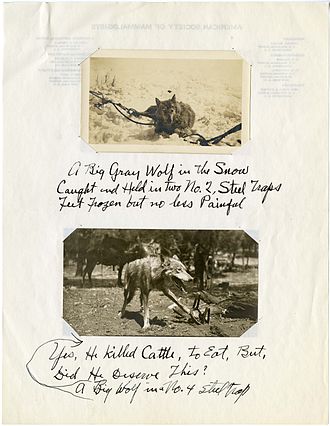 AMERICAN SOCIETY OF MAMMALOGISTS
A Big Gray Wolf in The Snow
Caught and Held in two No. 2, Steel Traps
Feet Frozen but no less Painful
Yes, He Killed Cattle, to Eat, But,
Did He Deserve This?
A Big Wolf in a No. 4 Steel trap